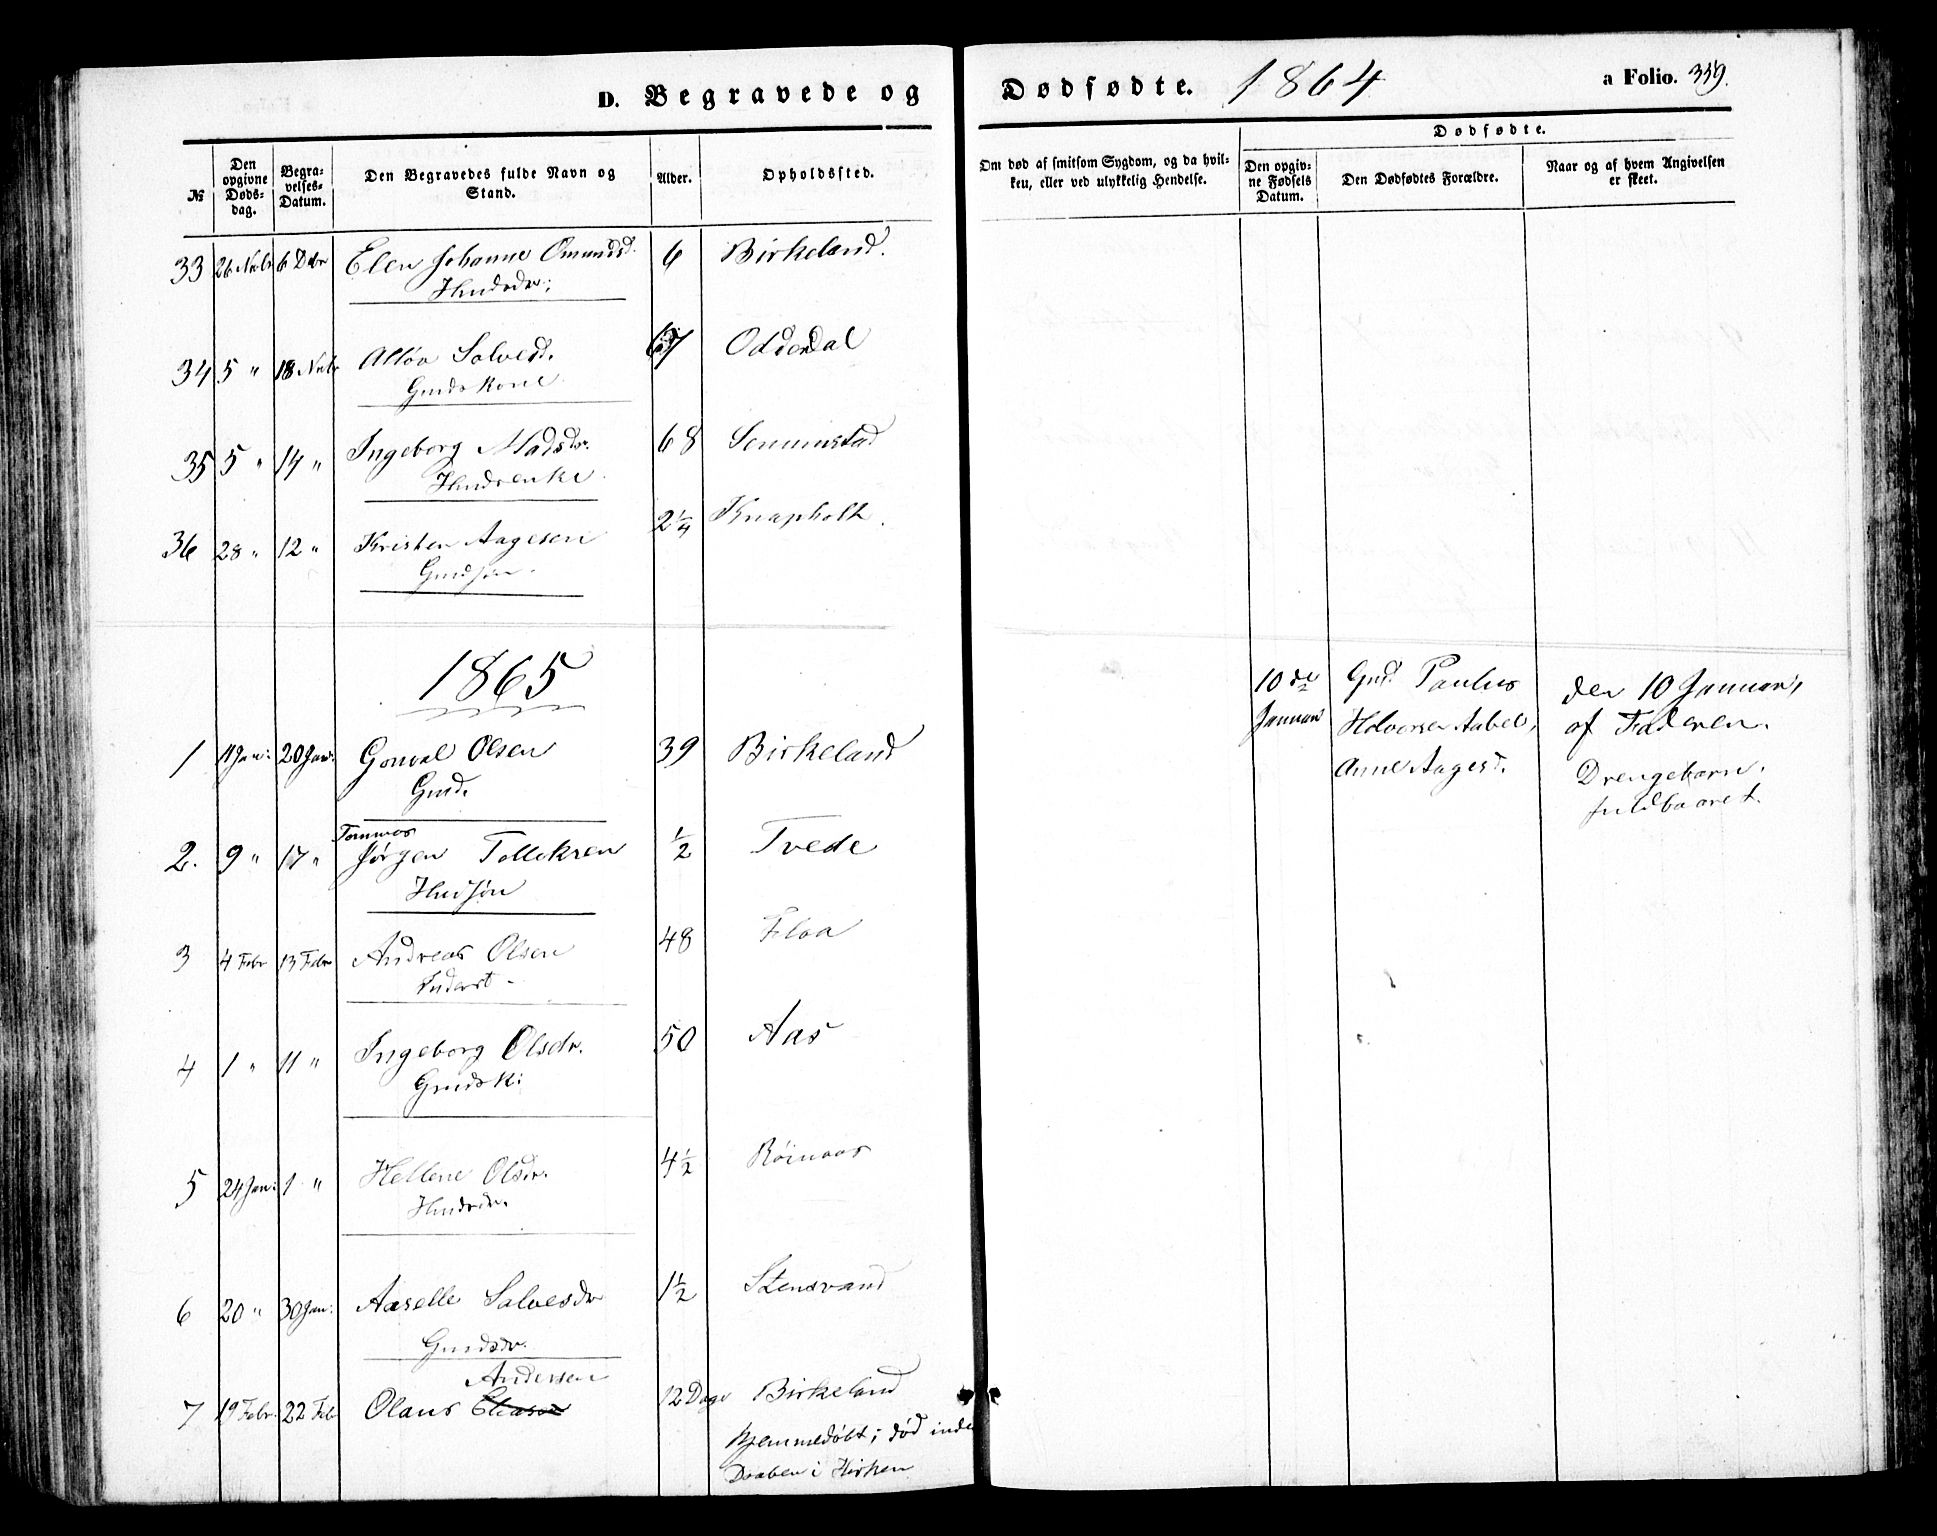 D. Begravede og Dødfødte. 1864
a Folio. 359.
№
Den opgivne Døds-dag.
Begra-velses-Datum.
Den Begravedes fulde Navn og Stand.
Alder.
Opholdssted.
Om død af smitsom Sygdom, og da hvil-
keu, eller ved ulykkelig Hendelse.
Dødfødte.
Den opgiv-ne Fødsels Datum.
Den Dødfødtes Forældre.
Naar og af hvem Angivelsen er skeet.
33 26 Novbr 6 Dcbr Elen Johanne Omundsd. 6 Birkeland.
Husdr:
34 5 " 18 Novbr Salvesd. 67 Oddersdal
Gmdskone
35 5 " 14 " Ingeborg Madsdr. 68 Senumstad
Husenke
36 28 " 12 " Kristen Aagesen 2 1/4 Knapholt.
Gmdsøn.
1865
10de Gmd. Paulus den 10 Januar,
Januar Halvorsen Aabel, af Faderen.
Anne Aagesd. Drengebarn,
fuldbaaret.
1 11 Jan: 20 Jan: Gonval Olsen 39 Birkeland
Gmd.
Tommas
2. 9 " 17 " Jørgen Tellefsen 1/2 Tvede
Husøn
3 4 Febr 13 Febr Andreas Olsen 48 Floa
Inderst
4 1 " 11 " Ingeborg Olsdr. 50 Aas
Gmdsk:
5 24 Jan: 1 " Hellene Olsdr. 4 1/2 Røinaas
Husdr.
6 20 " 30 Jan: Aaselle Salvesdr 1 1/2 Stensvand
Gmdsdr.
Andersen
7 19 Febr. 22 Feb Olaus 12 Dage Birkeland
Hjemmedøbt; død inden
Daaben i Kirken